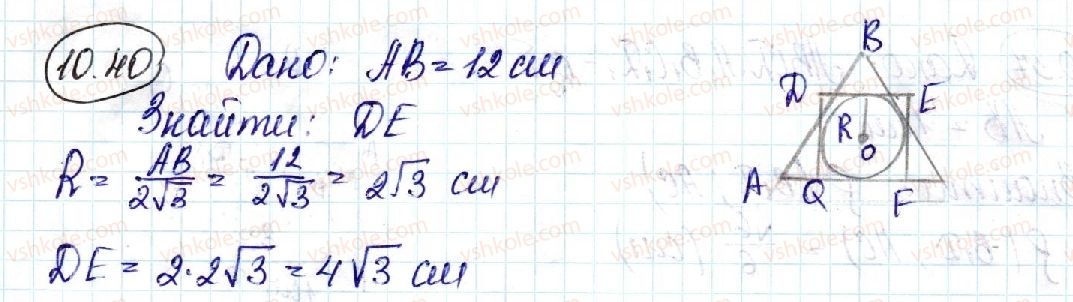 10.40 Дано: AB = 12 см
Знайти: DE
R = AB/2√3 = 12/2√3 = 2√3 см
DE = 2·2√3 = 4√3 см
B
D E
R
O
A Q F